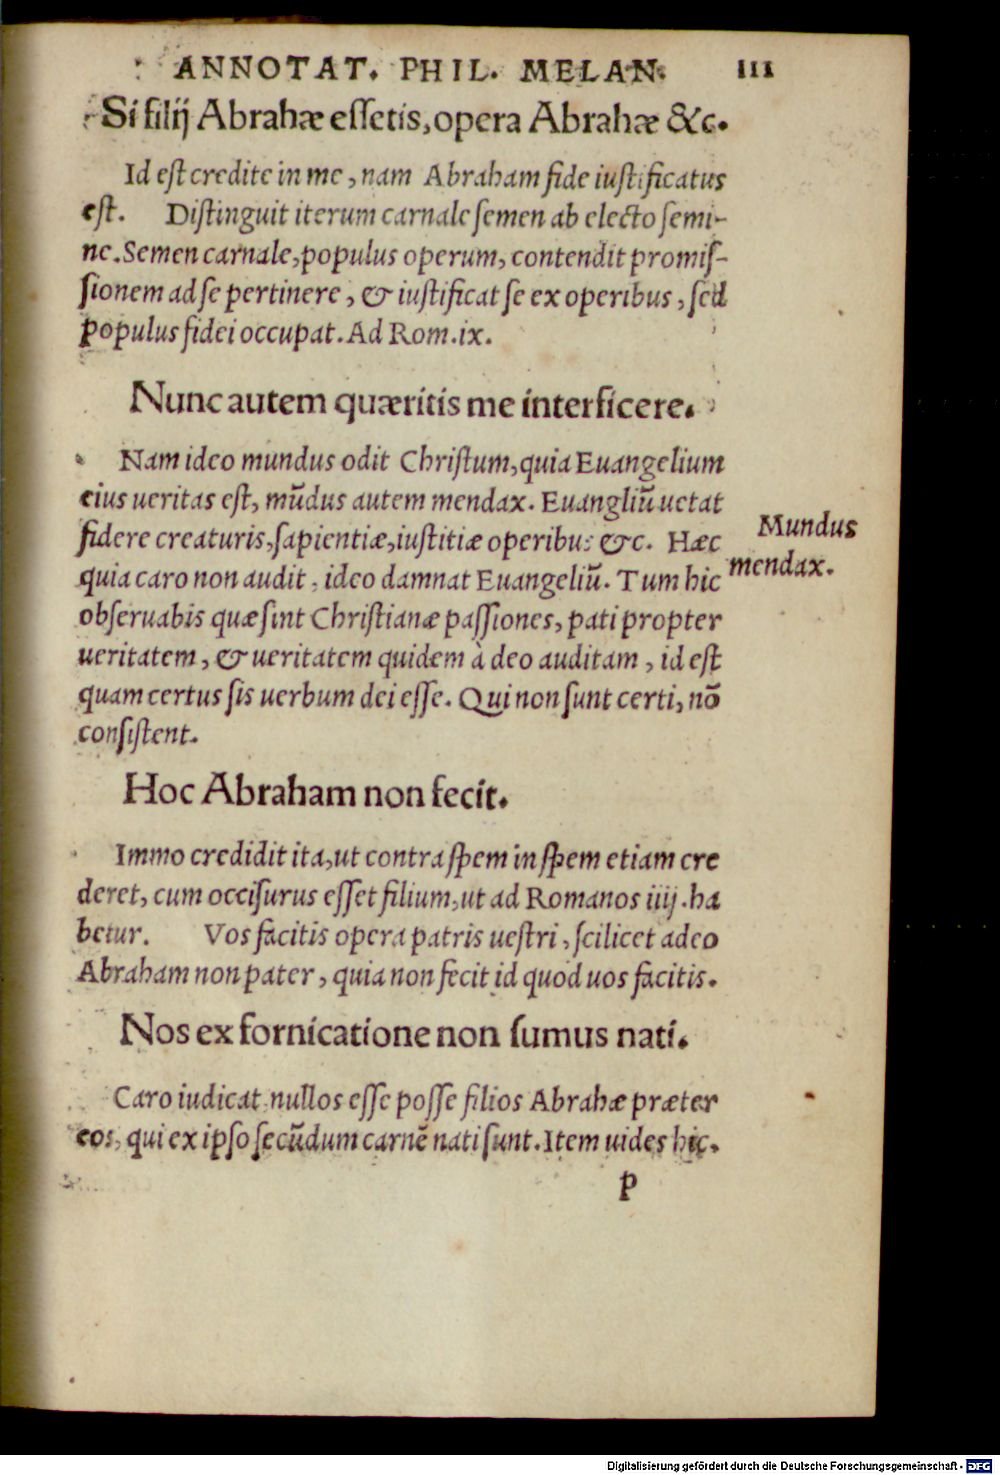 ANNOTAT. PHIL. MELAN. 111
Si filij Abrahæ eſſetis, opera Abrahæ &c.
Id eſt credite in me, nam Abraham fide iuſtificatus
eſt. Diſtinguit iterum carnale ſemen ab electo ſemi-
ne. Semen carnale, populus operum, contendit promiſ-
ſionem ad ſe pertinere, & iuſtificat ſe ex operibus, ſed
populus fidei occupat. Ad Rom. ix.
Nunc autem quæritis me interficere.
Nam ideo mundus odit Chriſtum, quia Euangelium
eius ueritas eſt, mūdus autem mendax. Euangliū uetat
fidere creaturis, ſapientiæ, iuſtitiæ operibus &c. Hæc
quia caro non audit, ideo damnat Euangeliū. Tum hic
obſeruabis quæ ſint Chriſtianæ paſſiones, pati propter
ueritatem, & ueritatem quidem à deo auditam, id eſt
quam certus ſis uerbum dei eſſe. Qui non ſunt certi, nō
conſiſtent.
Mundus
mendax.
Hoc Abraham non fecit.
Immo credidit ita, ut contra ſpem in ſpem etiam cre
deret, cum occiſurus eſſet filium, ut ad Romanos iiij. ha
betur. Vos facitis opera patris ueſtri, ſcilicet adeo
Abraham non pater, quia non fecit id quod uos facitis.
Nos ex fornicatione non ſumus nati.
Caro iudicat nullos eſſe poſſe filios Abrahæ præter
eos, qui ex ipſo ſecūdum carnē nati ſunt. Item uides hic.
P
Digitalisierung gefördert durch die Deutsche Forschungsgemeinschaft - DFG